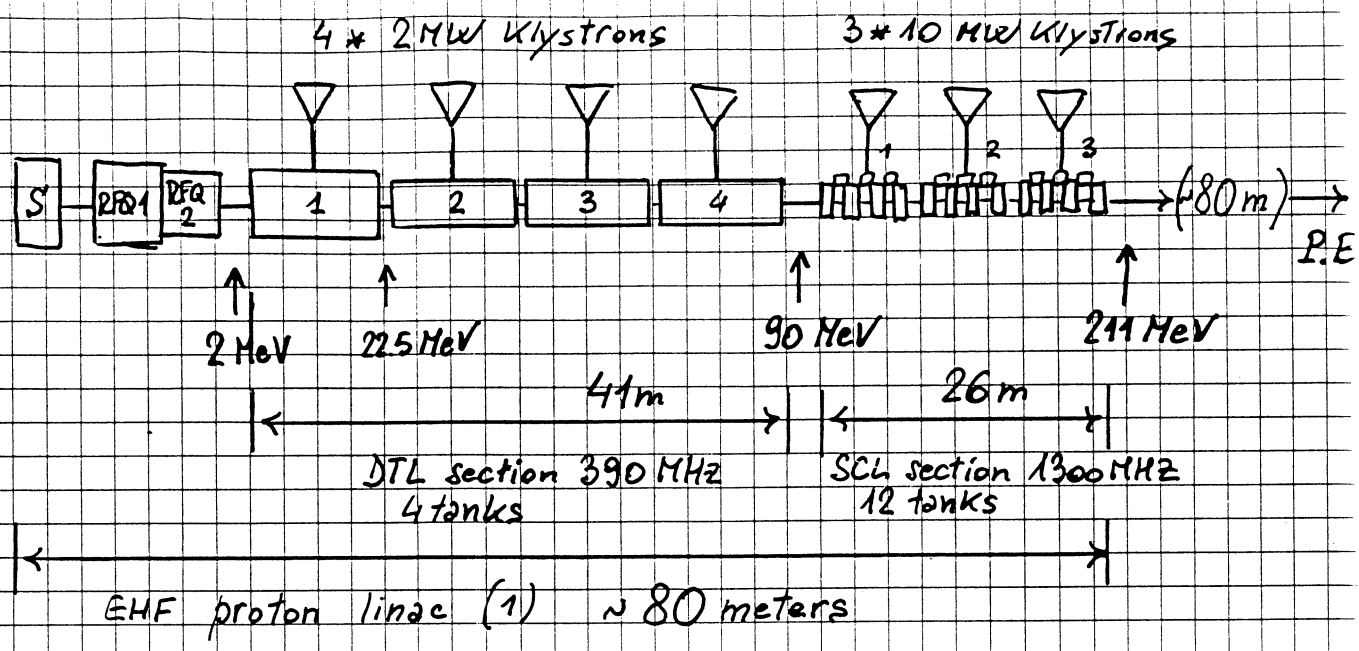 4 * 2 MW Klystrons 3 * 10 MW Klystrons
1 2 3
S RFQ1 RFQ 2 1 2 3 4 (~80m)
P.E
2 MeV 225 MeV 90 MeV 211 MeV
41m 26m
DTL section 390 MHz SCL section 1300 MHz
4 tanks 12 tanks
EHF proton linac (1) ~ 80 meters